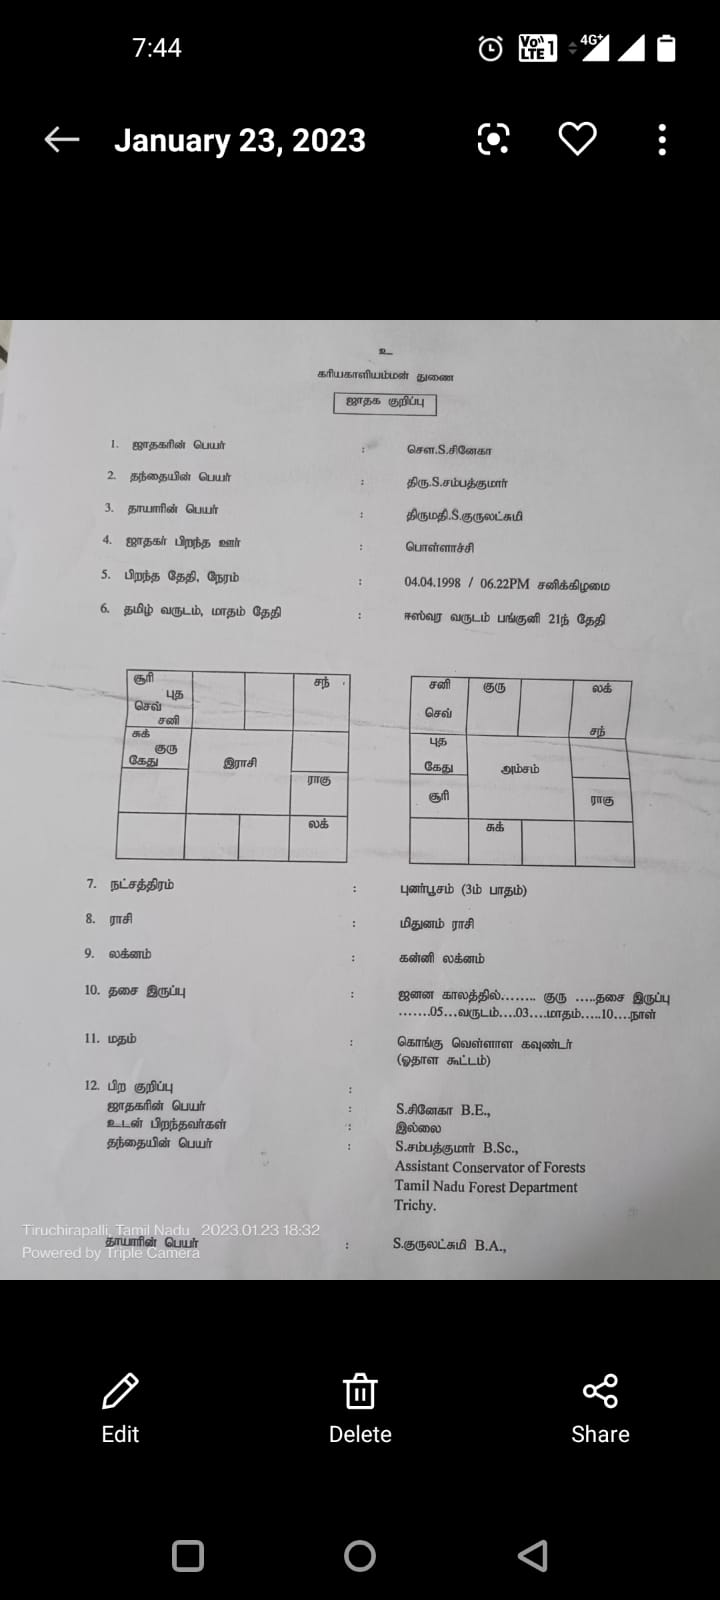 7:44
VoLTE 1 4G+
January 23, 2023
உ
கரியகாளியம்மன் துணை
ஜாதக குறிப்பு
1. ஜாதகரின் பெயர் : சௌ.S.சினேகா
2. தந்தையின் பெயர் : திரு.S.சம்பத்குமார்
3. தாயாரின் பெயர் : திருமதி.S.குருலட்சுமி
4. ஜாதகர் பிறந்த ஊர் : பொள்ளாச்சி
5. பிறந்த தேதி, நேரம் : 04.04.1998 / 06.22PM சனிக்கிழமை
6. தமிழ் வருடம், மாதம் தேதி : ஈஸ்வர வருடம் பங்குனி 21ந் தேதி
சூரி புத செவ் சனி
சந்
சுக் குரு கேது
இராசி
ராகு
லக்
சனி செவ்
குரு
லக் சந்
புத கேது
அம்சம்
சூரி
ராகு
சுக்
7. நட்சத்திரம் : புனர்பூசம் (3ம் பாதம்)
8. ராசி : மிதுனம் ராசி
9. லக்னம் : கன்னி லக்னம்
10. தசை இருப்பு : ஜனன காலத்தில்........ குரு .....தசை இருப்பு
.......05...வருடம்....03....மாதம்.....10....நாள்
11. மதம் : கொங்கு வெள்ளாள கவுண்டர்
(ஓதாள கூட்டம்)
12. பிற குறிப்பு :
ஜாதகரின் பெயர் : S.சினேகா B.E.,
உடன் பிறந்தவர்கள் : இல்லை
தந்தையின் பெயர் : S.சம்பத்குமார் B.Sc.,
Assistant Conservator of Forests
Tamil Nadu Forest Department
Trichy.
தாயாரின் பெயர் : S.குருலட்சுமி B.A.,
Tiruchirapalli, Tamil Nadu 2023.01.23 18:32
Powered by Triple Camera
Edit Delete Share